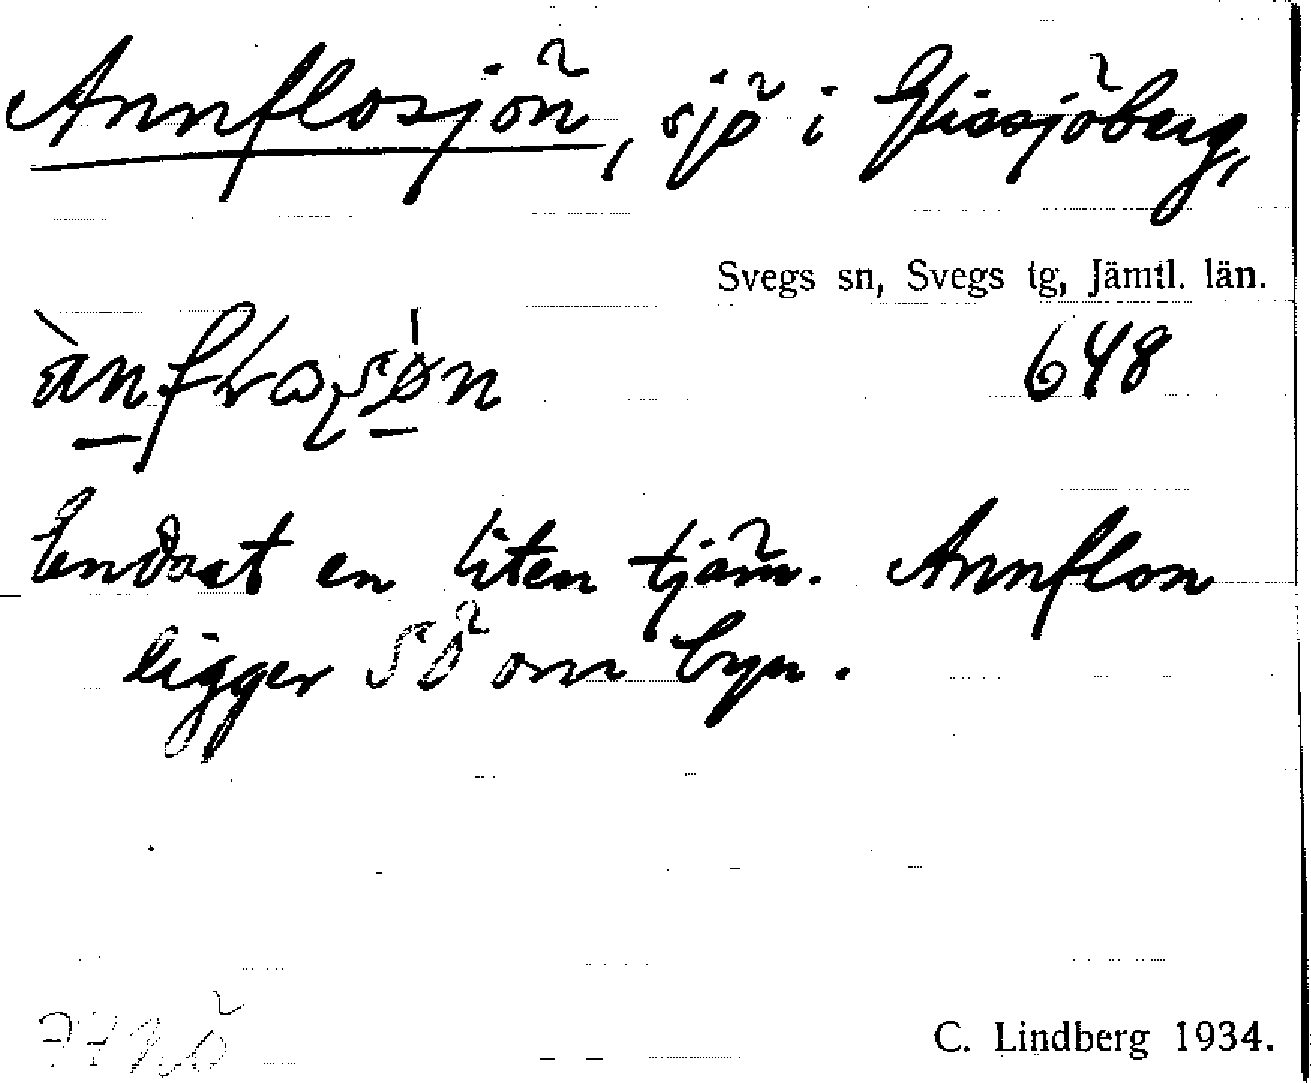 Annflosjön, sjö i Glissjöberg,
Svegs sn, Svegs tg, Jämtl. län.
648
Endast en liten tjärn. Annflon
ligger SÖ om byn.
74 NÖ
C. Lindberg 1934.